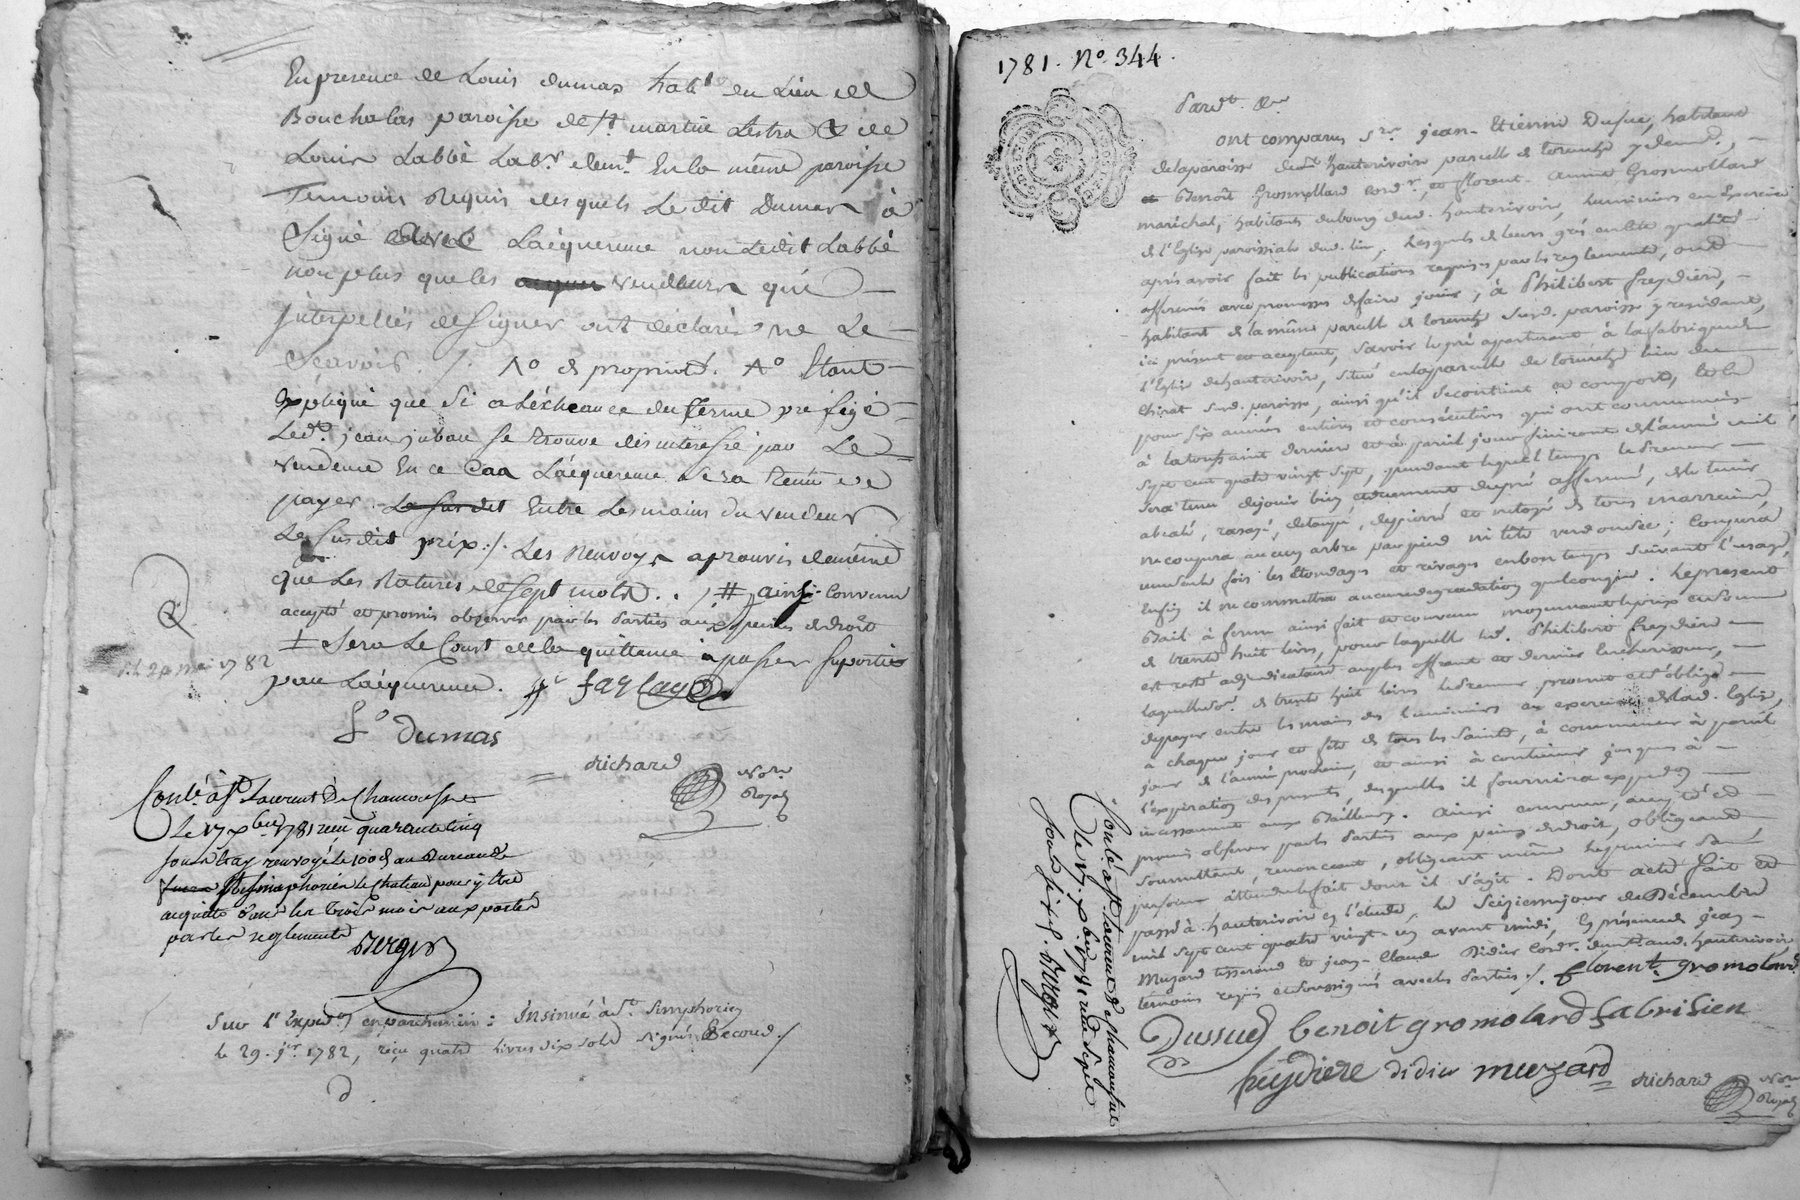 En presence de Louis dumas habt du Lieu de
Boucholas paroisse de St martin Lestra & de
Louis Labbé Labr demt En la même paroisse
Temoins Requis desquels Le dit Dumas a
Signé avec Lacquereur non Ledit Labbé
non plus que les vendeurs qui
Interpellés de signer ont déclaré ne Le
Scavoir. /. No de propriété. No Etant
Expliqué que si a Léchéance du terme prefigé
Ledt. jean se trouve desinteressé par Le
vendeur En ce Cas Lacquereur sera tenu de
payer Le susdit Entre Les mains du vendeur
Le susdit prix :/. Les Renvoys aprouvés de même
que Les Ratures de sept mots . . / # ainsi convenu
accepté et promis observer par les parties aux peines de droit
Sera Le Cout de la quittance a passer suporté
par Lacquereur.
Ls dumas
Richard Nore Royal
24 mai 1782
Conlé à St Laurent De Chamousset
Le 17 xbre 1781 reçu quarante cinq
sous renvoyé le 100e au Bureau de
St Simphorien le Chateau pour y être
acquitté dans les trois mois aux portés
par les reglements Berger
Sur l'Expedon en parchemin : Insinué à St. Simphorien
le 29. jer 1782, reçu quatre livres dix sols signé Secoud ./
1781. No. 344.
Pardt. &a
ont comparus Sr. jean-Etienne Dusue, habitant
de la paroisse dud hauterivoire parcelle de lorenche y demt.,
et Benoît Gromollard cordr., et florent-anne Gromollard
maréchal, habitants du bourg dud. hauterivoire, luminiers en Exercice
de l'Eglise paroissiale dud. lieu, lesquels de leurs grés en lade qualité
après avoir fait les publications requises par les reglements, ont
affermés avec promesses de faire jouir, à Philibert freydiere,
habitant de la même parcelle de lorenche susd. paroisse y residant,
ici présent et acceptant, savoir le pré apartenant à la fabrique de
l'Eglise de hauterivoire, situé en la parcelle de lorenche lieu du
Chirat susd. paroisse, ainsi qu'il se contient et comporte, le
pour six années entieres et consécutives qui ont commencés
à la toussaint derniere et à pareil jour finiront de l'année mil
sept cent quatre vingt sept, pendant lequel temps le preneur
sera tenu de jouir bien et duement du pré affermé, de le tenir
ne coupera aucuns arbres par pied ni tête ; coupera
une seule fois les Etondages et rivages en bon temps suivant l'usage,
Enfin il ne commettra aucune degradation quelconque. Le present
Bail à ferme ainsi fait et convenu moyennant le prix et somme
de trente huit livres, pour laquelle led. Philibert freydiere
est resté adjudicataire au plus offrant et dernier Encherisseur,
laquelle somme de trente huit livres le preneur promet et s'oblige
de payer entre les mains des luminiers en exercice de lad. Eglise,
à chaque jour et fête de tous les Saints, à commencer à pareil
jour de l'année prochaine, et ainsi à continuer jusques à
l'expiration des presents, desquelles il fournira expedon
incessament aux Bailleurs. Ainsi convenu, accepté et
promis observer par les Parties aux peines de droit, obligeant,
soumettant, renonceant, obligeant même le preneur sa
personne attendu le fait dont il s'agit. Dont acte fait et
passé à hauterivoire en l'étude, le seizieme jour de Décembre
mil sept cent quatre vingt-un avant midi, En présence de jean
Muzard tisserand et jean-Claude Didier cordr. demt aud. hauterivoire
temoins requis et soussignés avec les Parties ./. florent gromolard
Dussué benoit gromolard fabrisien
freydiere didier muzard
Richard Nore Royal
Conlé à St Laurent De Chamousset
le 17 xbre 1781 reçu sept
sous six d. Berger